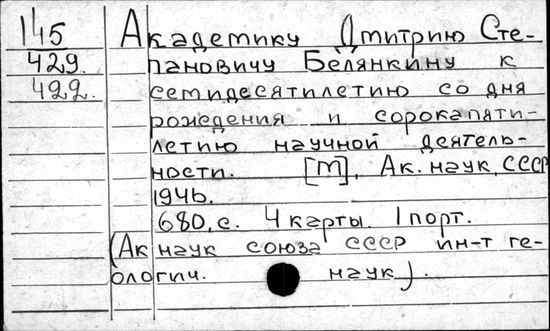 145 Академику Дмитрию Сте-
429. пановичу Белянкину к
422. семидесятилетию со дня
рождения и сорокапяти-
летию научной деятель-
ности. [М], Ак. наук СССР
1946.
680.с. 4 карты. 1 порт.
(Ак наук союза СССР ин-т ге-
ологич. наук).